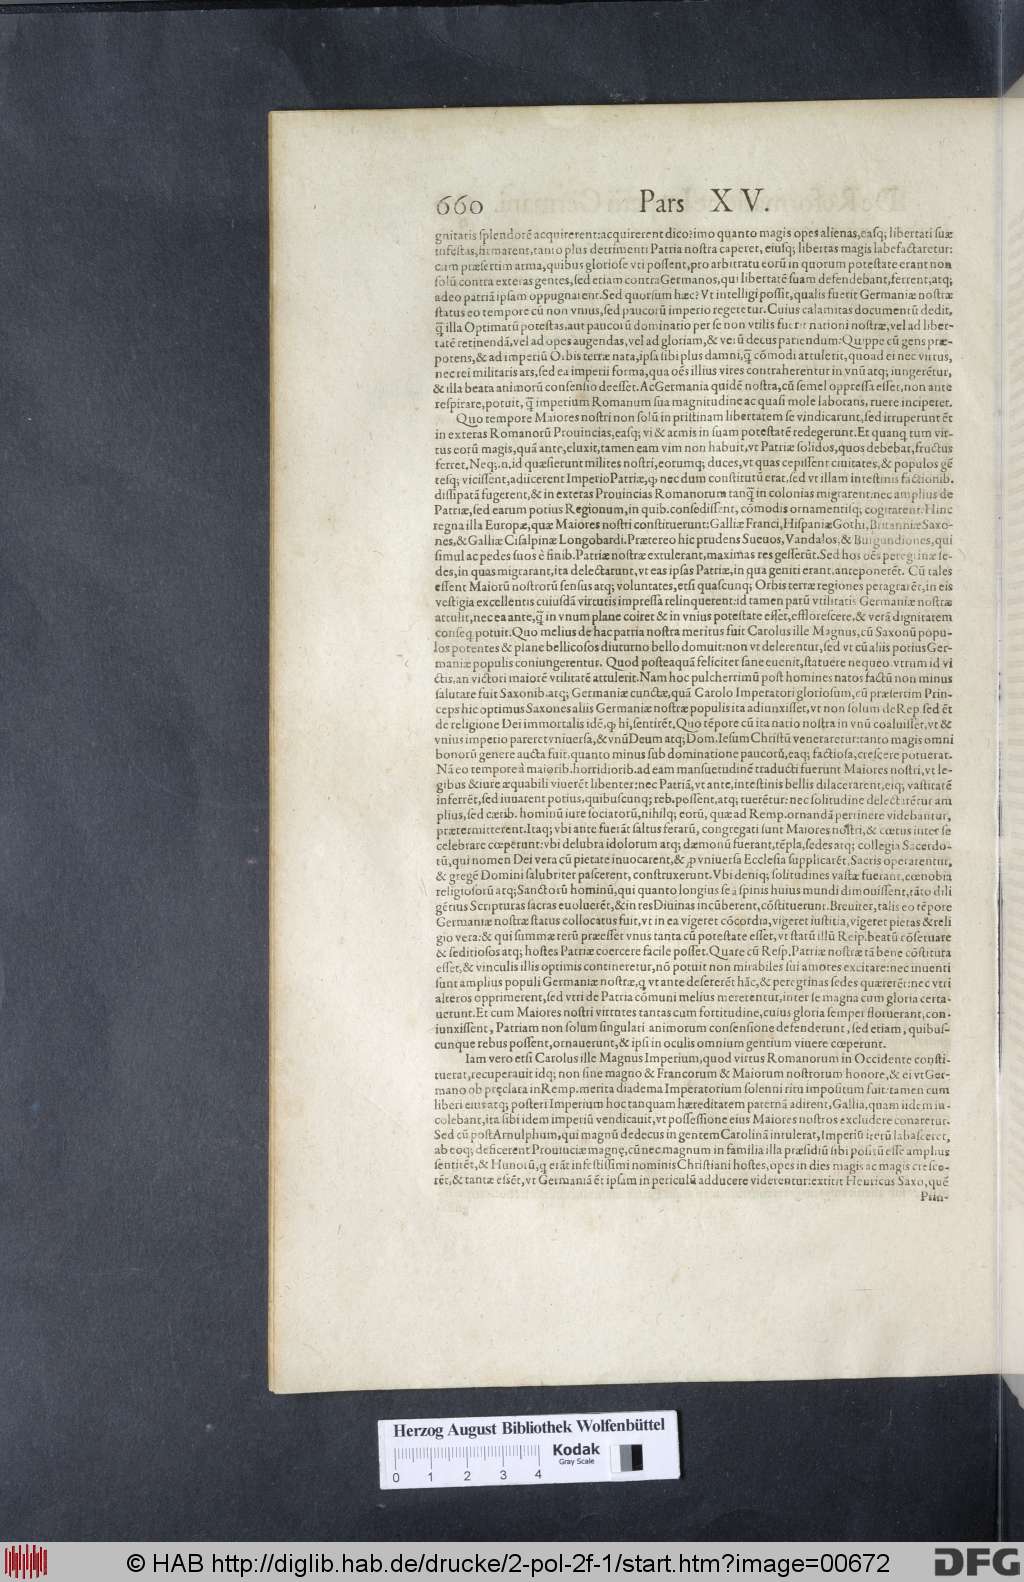 660 Pars XV.
gnitatis ſplendorē acquirerent: acquirerent dico? imo quanto magis opes alienas, eaſq; libertati ſuæ
infeſtas, firmarent, tanto plus detrimenti Patria noſtra caperet, eiuſq; libertas magis labefactaretur:
cum præſertim arma, quibus glorioſe vti poſſent, pro arbitratu eorū in quorum poteſtate erant non
ſolū contra exteras gentes, ſed etiam contra Germanos, qui libertatē ſuam defendebant, ferrent, atq;
adeo patriā ipſam oppugnarent. Sed quorſum hæc? Vt intelligi poſſit, qualis fuerit Germaniæ noſtræ
ſtatus eo tempore cū non vnius, ſed paucorū imperio regeretur. Cuius calamitas documentū dedit,
q̄ illa Optimatū poteſtas, aut paucorū dominatio per ſe non vtilis fuerit nationi noſtræ, vel ad liber-
tatē retinendā, vel ad opes augendas, vel ad gloriam, & verū decus pariendum: Quippe cū gens præ-
potens, & ad imperiū Orbis terræ nata, ipſa ſibi plus damni, q̄ cōmodi attulerit, quoad ei nec virtus,
nec rei militaris ars, ſed ea imperii forma, qua oēs illius vires contraherentur in vnū atq; iungerētur,
& illa beata animorū conſenſio deeſſet. Ac Germania quidē noſtra, cū ſemel oppreſſa eſſet, non ante
reſpirare, potuit, q̄ imperium Romanum ſua magnitudine ac quaſi mole laborans, ruere inciperet.
Quo tempore Maiores noſtri non ſolū in priſtinam libertatem ſe vindicarunt, ſed irruperunt ēt
in exteras Romanorū Prouincias, eaſq; vi & armis in ſuam poteſtatē redegerunt. Et quanq̄ tum vir-
tus eorū magis, quā ante, eluxit, tamen eam vim non habuit, vt Patriæ ſolidos, quos debebat, fructus
ferret. Neq;. n. id quæſierunt milites noſtri, eorumq; duces, vt quas cepiſſent ciuitates, & populos gē
teſq; viciſſent, adiicerent Imperio Patriæ, q nec dum conſtitutū erat, ſed vt illam inteſtinis factionib.
diſſipatā fugerent, & in exteras Prouincias Romanorum tanq̄ in colonias migrarent: nec amplius de
Patriæ, ſed earum potius Regionum, in quib. conſediſſent, cōmodis ornamentiſq; cogitarent. Hinc
regna illa Europæ, quæ Maiores noſtri conſtituerunt: Galliæ Franci, Hiſpaniæ Gothi, Britanniæ Saxo-
nes, & Galliæ Ciſalpinæ Longobardi. Prætereo hic prudens Sueuos, Vandalos, & Burgundiones, qui
ſimul ac pedes ſuos è finib. Patriæ noſtræ extulerant, maximas res geſſerūt. Sed hos oēs peregrinæ ſe-
des, in quas migrarant, ita delectarunt, vt eas ipſas Patriæ, in qua geniti erant, anteponerēt. Cū tales
eſſent Maiorū noſtrorū ſenſus atq; voluntates, etſi quaſcunq; Orbis terræ regiones peragrarēt, in eis
veſtigia excellentis cuiuſdā virtutis impreſſa relinquerent: id tamen parū vtilitatis Germaniæ noſtræ
attulit, nec ea ante, q̄ in vnum plane coiret & in vnius poteſtate eſſet, effloreſcere, & verā dignitatem
conſeq potuit. Quo melius de hac patria noſtra meritus fuit Carolus ille Magnus, cū Saxonū popu-
los potentes & plane bellicoſos diuturno bello domuit: non vt delerentur, ſed vt cū aliis potius Ger-
maniæ populis coniungerentur. Quod poſteaquā feliciter ſane euenit, ſtatuere nequeo, vtrum id vi
ctis, an victori maiorē vtilitatē attulerit. Nam hoc pulcherrimū poſt homines natos factū non minus
ſalutare fuit Saxonib. atq; Germaniæ cunctæ, quā Carolo Imperatori glorioſum, cū præſertim Prin-
ceps hic optimus Saxones aliis Germaniæ noſtræ populis ita adiunxiſſet, vt non ſolum de Rep. ſed ēt
de religione Dei immortalis idē, q hi, ſentirēt. Quo tēpore cū ita natio noſtra in vnū coaluiſſet, vt &
vnius imperio pareret vniuerſa, & vnū Deum atq; Dom. Ieſum Chriſtū veneraretur: tanto magis omni
bonorū genere aucta fuit, quanto minus ſub dominatione paucorū, eaq; factioſa, creſcere potuerat.
Nā eo tempore à maiorib. horridiorib. ad eam manſuetudinē traducti fuerunt Maiores noſtri, vt le-
gibus & iure æquabili viuerēt libenter: nec Patriā, vt ante, inteſtinis bellis dilacerarent, eiq; vaſtitatē
inferrēt, ſed iuuarent potius, quibuſcunq; reb. poſſent, atq; tuerētur: nec ſolitudine delectarētur am
plius, ſed cætib. hominū iure ſociatorū, nihilq; eorū, quæ ad Remp. ornandā pertinere videbantur,
prætermitterent. Itaq; vbi ante fuerāt ſaltus ferarū, congregati ſunt Maiores noſtri, & cœtus inter ſe
celebrare cœperunt: vbi delubra idolorum atq; dæmonū fuerant, tēpla, ſedes atq; collegia Sacerdo-
tū, qui nomen Dei vera cū pietate inuocarent, & ꝓ vniuerſa Eccleſia ſupplicarēt, Sacris operarentur,
& gregē Domini ſalubriter paſcerent, conſtruxerunt. Vbi deniq; ſolitudines vaſtæ fuerant, cœnobia
religioſorū atq; Sanctorū hominū, qui quanto longius ſe à ſpinis huius mundi dimouiſſent, tāto dili
gētius Scripturas ſacras euoluerēt, & in res Diuinas incūberent, cōſtituerunt. Breuiter, talis eo tēpore
Germaniæ noſtræ ſtatus collocatus fuit, vt in ea vigeret cōcordia, vigeret iuſtitia, vigeret pietas & reli
gio vera: & qui ſummæ rerū præeſſet vnus tanta cū poteſtate eſſet, vt ſtatū illū Reip. beatū cōſeruare
& ſeditioſos atq; hoſtes Patriæ coercere facile poſſet. Quare cū Reſp. Patriæ noſtræ tā bene cōſtituta
eſſet, & vinculis illis optimis contineretur, nō potuit non mirabiles ſui amores excitare: nec inuenti
ſunt amplius populi Germaniæ noſtræ, q vt ante deſererēt hāc, & peregrinas ſedes quærerēt: nec vtri
alteros opprimerent, ſed vtri de Patria cōmuni melius mererentur, inter ſe magna cum gloria certa-
uerunt. Et cum Maiores noſtri virtutes tantas cum fortitudine, cuius gloria ſemper floruerant, con-
iunxiſſent, Patriam non ſolum ſingulari animorum conſenſione defenderunt, ſed etiam, quibuſ-
cunque rebus poſſent, ornauerunt, & ipſi in oculis omnium gentium viuere cœperunt.
Iam vero etſi Carolus ille Magnus Imperium, quod virtus Romanorum in Occidente conſti-
tuerat, recuperauit idq; non ſine magno & Francorum & Maiorum noſtrorum honore, & ei vt Ger-
mano ob pręclara in Remp. merita diadema Imperatorium ſolenni ritu impoſitum fuit: tamen cum
liberi eius atq; poſteri Imperium hoc tanquam hæreditatem paternā adirent, Gallia, quam iidem in-
colebant, ita ſibi idem imperiū vendicauit, vt poſſeſſione eius Maiores noſtros excludere conaretur.
Sed cū poſt Arnulphum, qui magnū dedecus in gentem Carolinā intulerat, Imperiū iterū labaſceret,
ab eoq; deficerent Prouinciæ magnę, cū nec magnum in familia illa præſidiū ſibi poſitū eſſe amplius
ſentirēt, & Hunorū, q erāt infeſtiſſimi nominis Chriſtiani hoſtes, opes in dies magis ac magis creſce-
rēt, & tantæ eſsēt, vt Germaniā ēt ipſam in periculū adducere viderentur: extitit Henricus Saxo, quē
Prin-
Herzog August Bibliothek Wolfenbüttel
Kodak
Gray Scale
0 1 2 3 4
© HAB http://diglib.hab.de/drucke/2-pol-2f-1/start.htm?image=00672
DFG